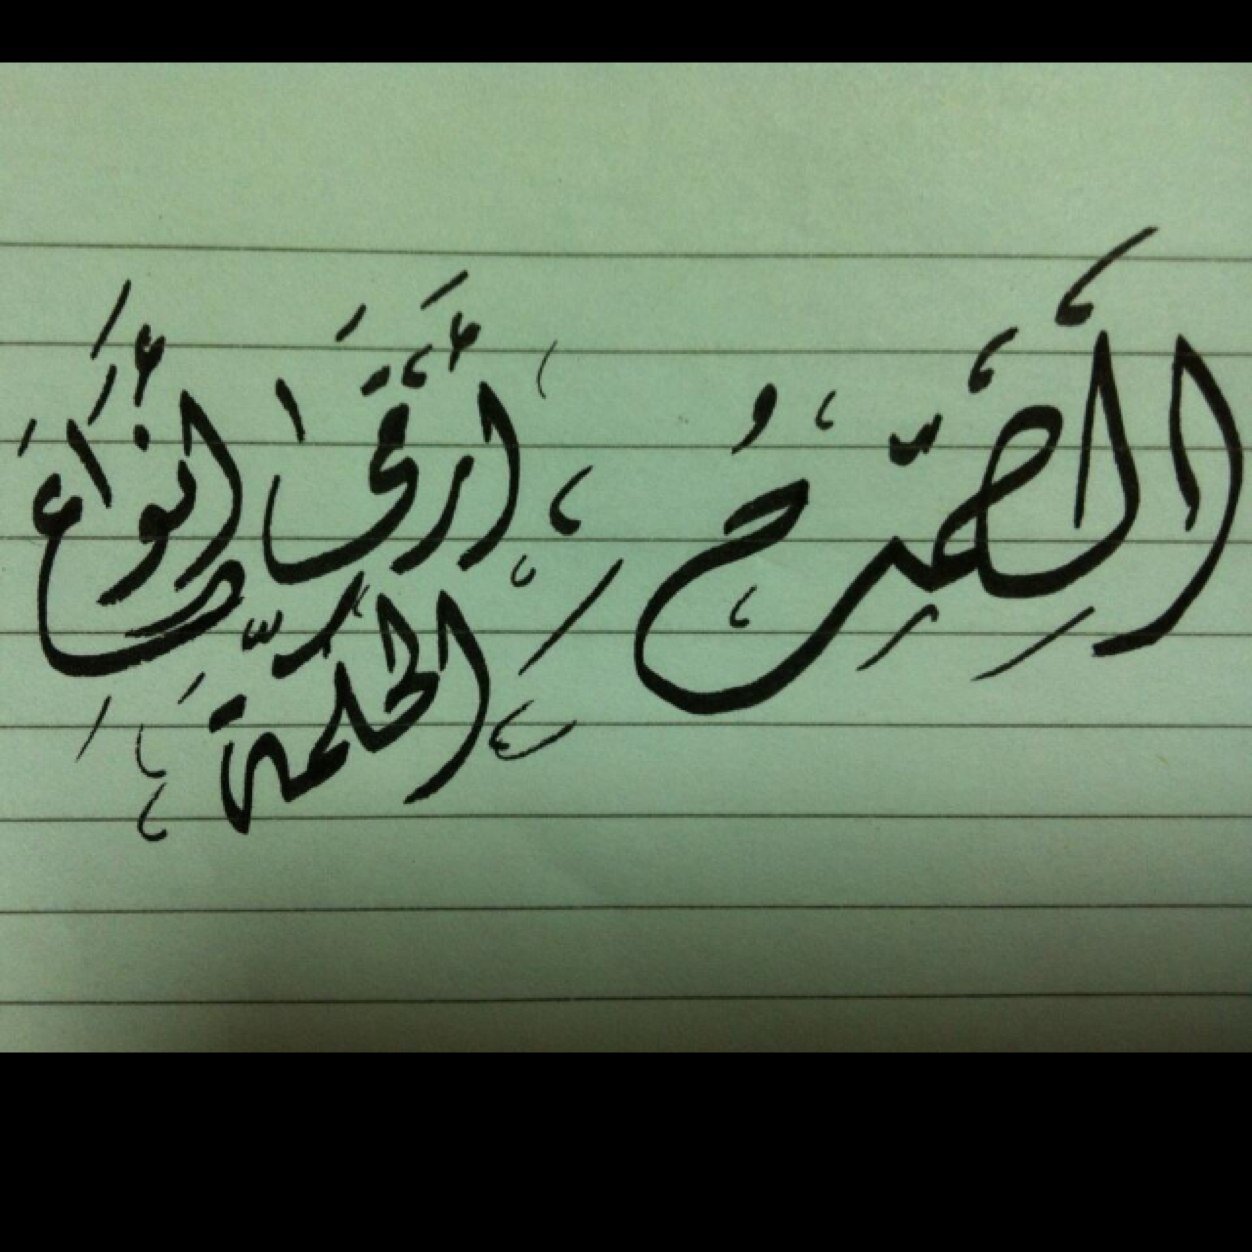 الصَّمتُ أَرقَى أَنوَاعَ الحكمّة